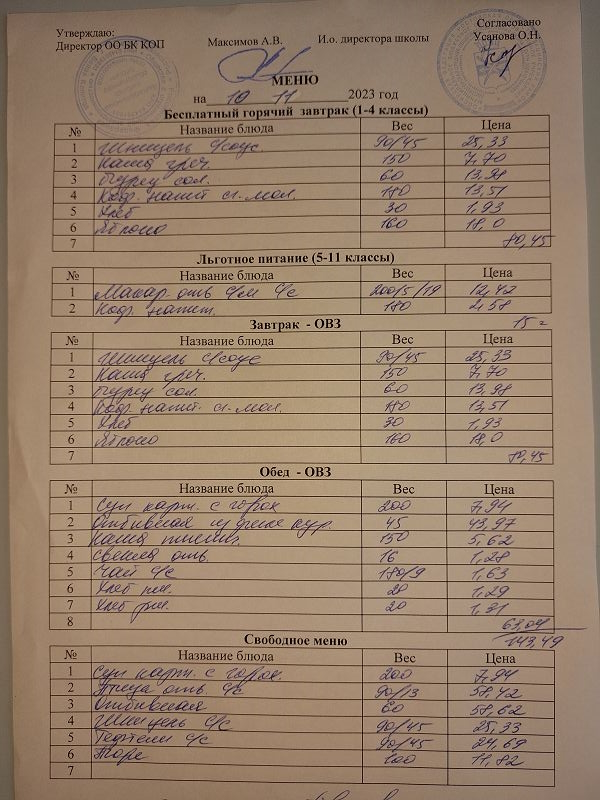 Утверждаю: Согласовано
Директор ОО БК КОП Максимов А.В. И.о. директора школы Усанова О.Н.
МЕНЮ
на 10 11 2023 год
Бесплатный горячий завтрак (1-4 классы)
№ Название блюда Вес Цена
1 Шницель с/соус. 90/45 25,33
2 Каша греч. 150 7,70
3 Огурец сол. 60 13,98
4 Коф. напит сг. мол. 180 13,51
5 Хлеб 30 1,93
6 Яблоко 160 18,0
7 80,45
Льготное питание (5-11 классы)
№ Название блюда Вес Цена
1 Макар. отв с/м с/с 200/5/19 12,42
2 Коф. напит. 180 2,58
15=
Завтрак - ОВЗ
№ Название блюда Вес Цена
1 Шницель с/соус 90/45 25,33
2 Каша греч. 150 7,70
3 Огурец сол. 60 13,98
4 Коф. напит. сг. мол. 180 13,51
5 Хлеб 30 1,93
6 Яблоко 160 18,0
7 80,45
Обед - ОВЗ
№ Название блюда Вес Цена
1 Суп карт. с горох 200 7,94
2 Отбивная из филе кур. 45 43,97
3 Каша пшен. 150 5,62
4 Свекла отв. 16 1,28
5 Чай с/с 180/9 1,63
6 Хлеб пш. 20 1,29
7 Хлеб рж. 20 1,31
8 63,04
143,49
Свободное меню
№ Название блюда Вес Цена
1 Суп карт. с горох. 200 7,94
2 Птица отв. с/с 90/13 58,42
3 Отбивная 60 58,62
4 Шницель с/с 90/45 25,33
5 Тефтели с/с 90/45 24,69
6 Пюре 100 11,82
7